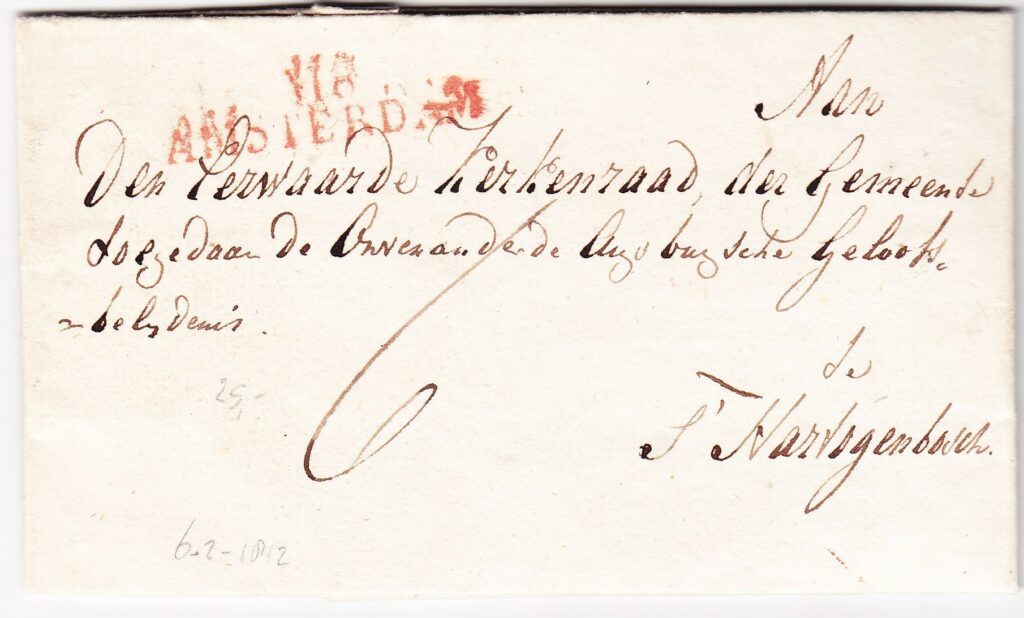 118
AMSTERDAM
Aan
Den Eerwaarde Kerkenraad, der Gemeente
toegedaan de Onveranderde Augsburgsche Geloofs=
=belydenis.
6
25,-
te
S' Hartogenbosch.
6-2-1812